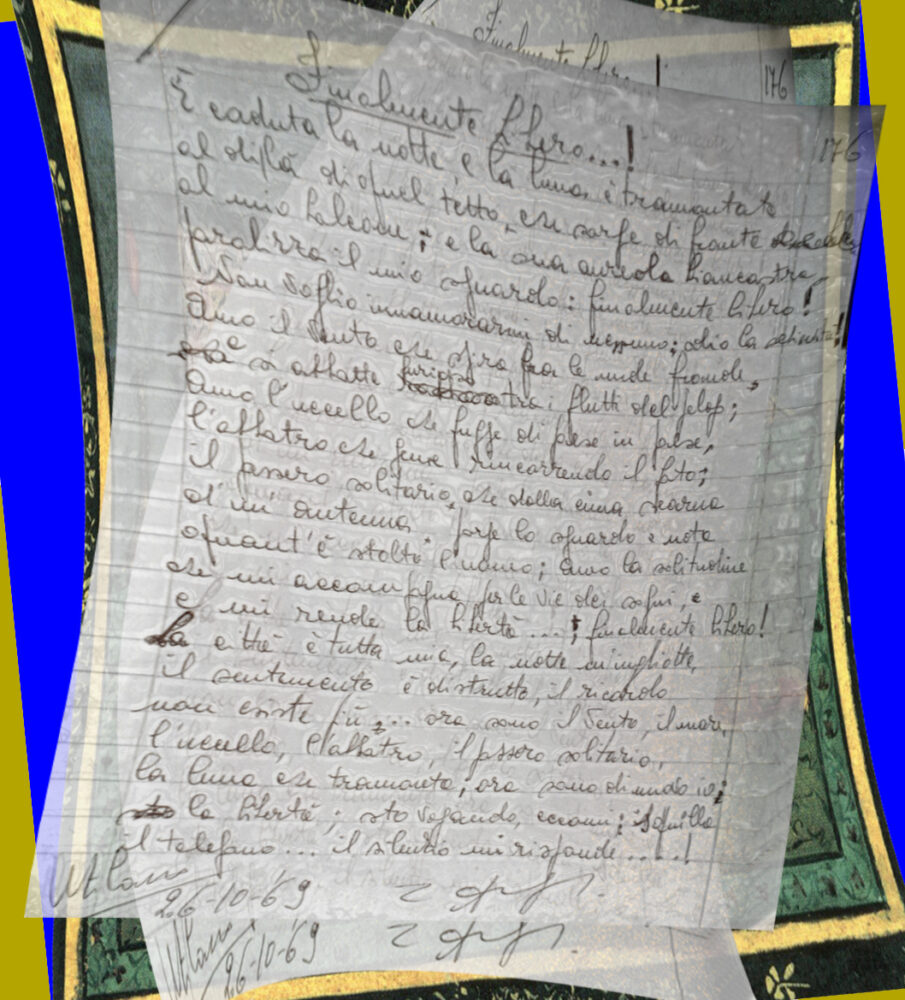 Finalmente libero...!
176
Finalmente libero...!
176
È caduta la notte, e la luna, è tramontata
al di là di quel tetto, che sorge di fronte
al mio balcone; e la sua aureola biancastra,
il mio sguardo: finalmente libero!
Non voglio innamorarmi di nessuno; odio la
Amo il vento che spira fra le nude fronde,
e si abbatte furioso tra i flutti del
Amo l'uccello che fugge di paese in paese,
l'albatro che geme rincorrendo il fato;
il passero solitario, che dalla cima scarna
d'un'antenna porge lo sguardo e nota
quant'è stolto l'uomo; amo la solitudine
che mi accompagna per le vie dei sogni, e
e mi rende la libertà...; finalmente libero!
la città è tutta mia, la notte m'inghiotte,
il sentimento è distrutto, il ricordo
non esiste più... ora sono il vento, il mare,
l'uccello, l'albatro, il passero solitario,
la luna che tramonta; ora sono
la libertà; sto vagando, eccomi; squilla
il telefono... il silenzio mi risponde....!
Milano
26-10-'69
Milano
26-10-'69